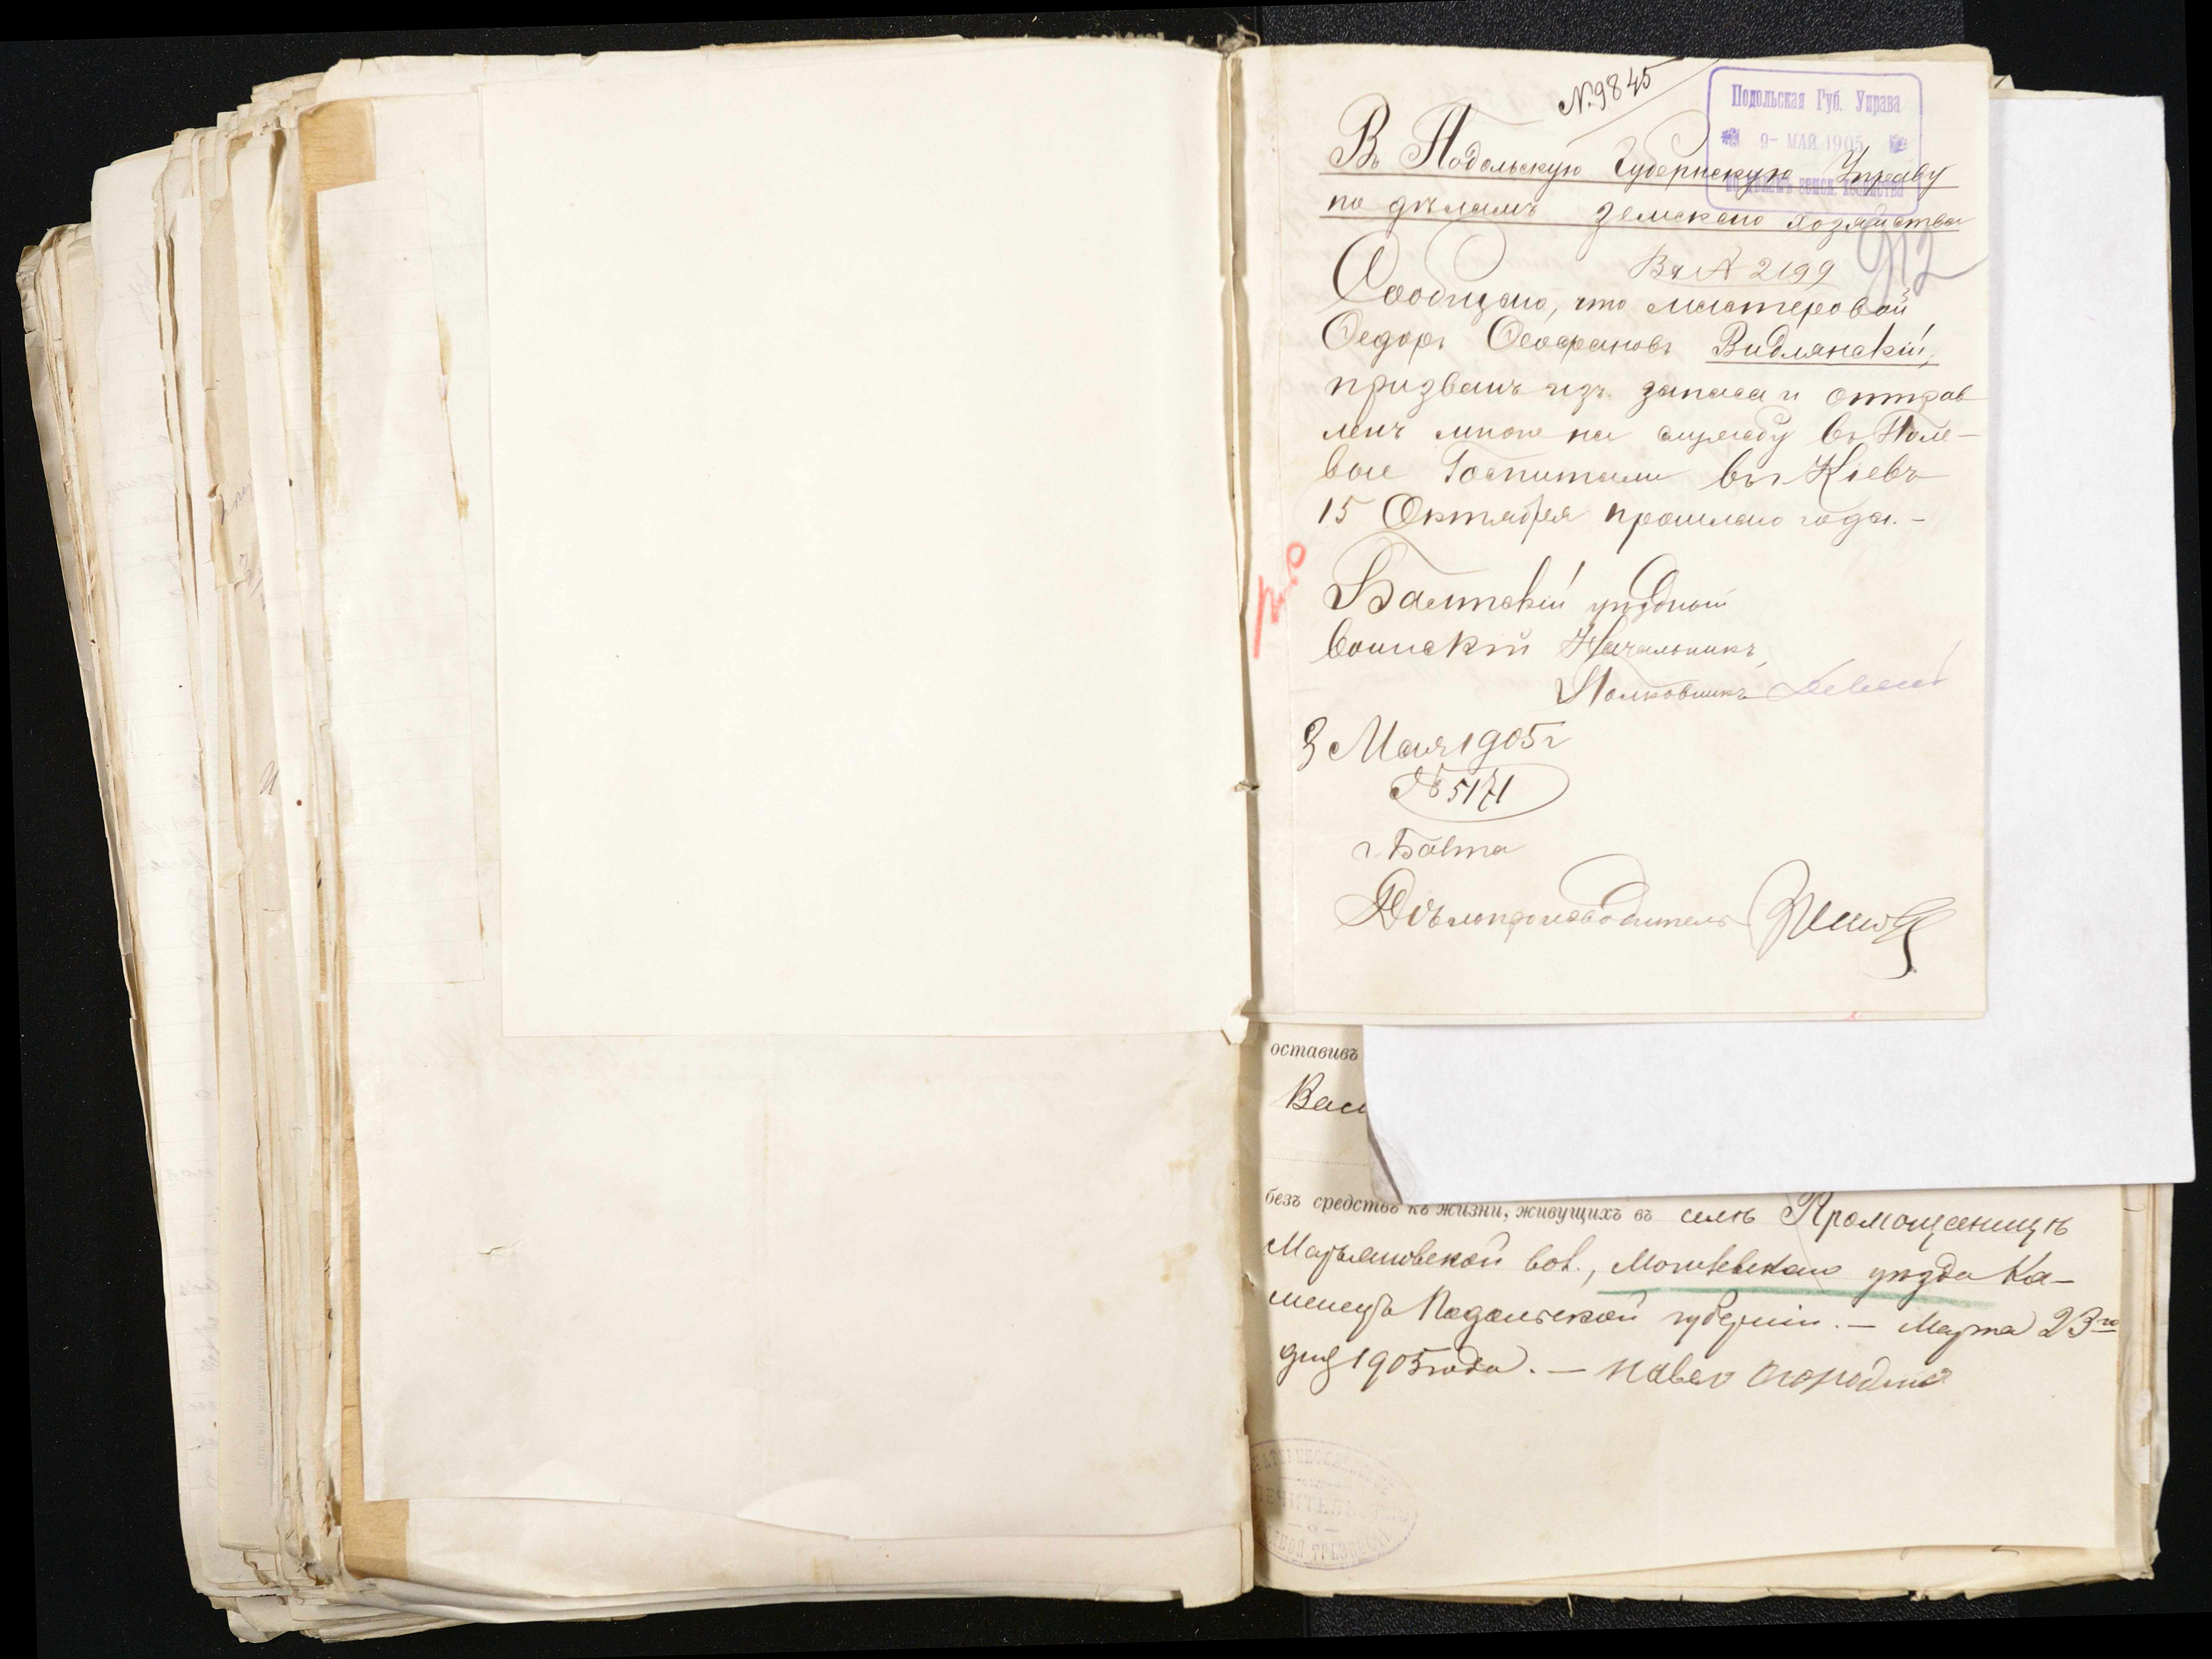 № 9845
Подольская Губ. Управа
9- МАЙ 1905
Въ Подольскую Губернскую Управу
по дѣламъ земскаго хозяйства
912
На № 2199
Сообщаю, что мастеровой
Ѳедоръ Ѳеофановъ Видлянскій,
призванъ изъ запаса и отправ
ленъ мною на службу въ Поле-
вые Госпитали въ г Кіевъ
15 Октября прошлаго года.-
Балтскій уѣздный
воинскій Начальникъ,
Полковникъ
3 Мая 1905 г
№ 5171
г. Балта
Дѣлопроизводитель
оставивъ
Васи
безъ средствъ къ жизни, живущихъ въ селѣ
вол., Могилевскаго уѣзда Ка-
менецъ Подольской губерніи. - Марта 23го
дня 1905 года. - Павел